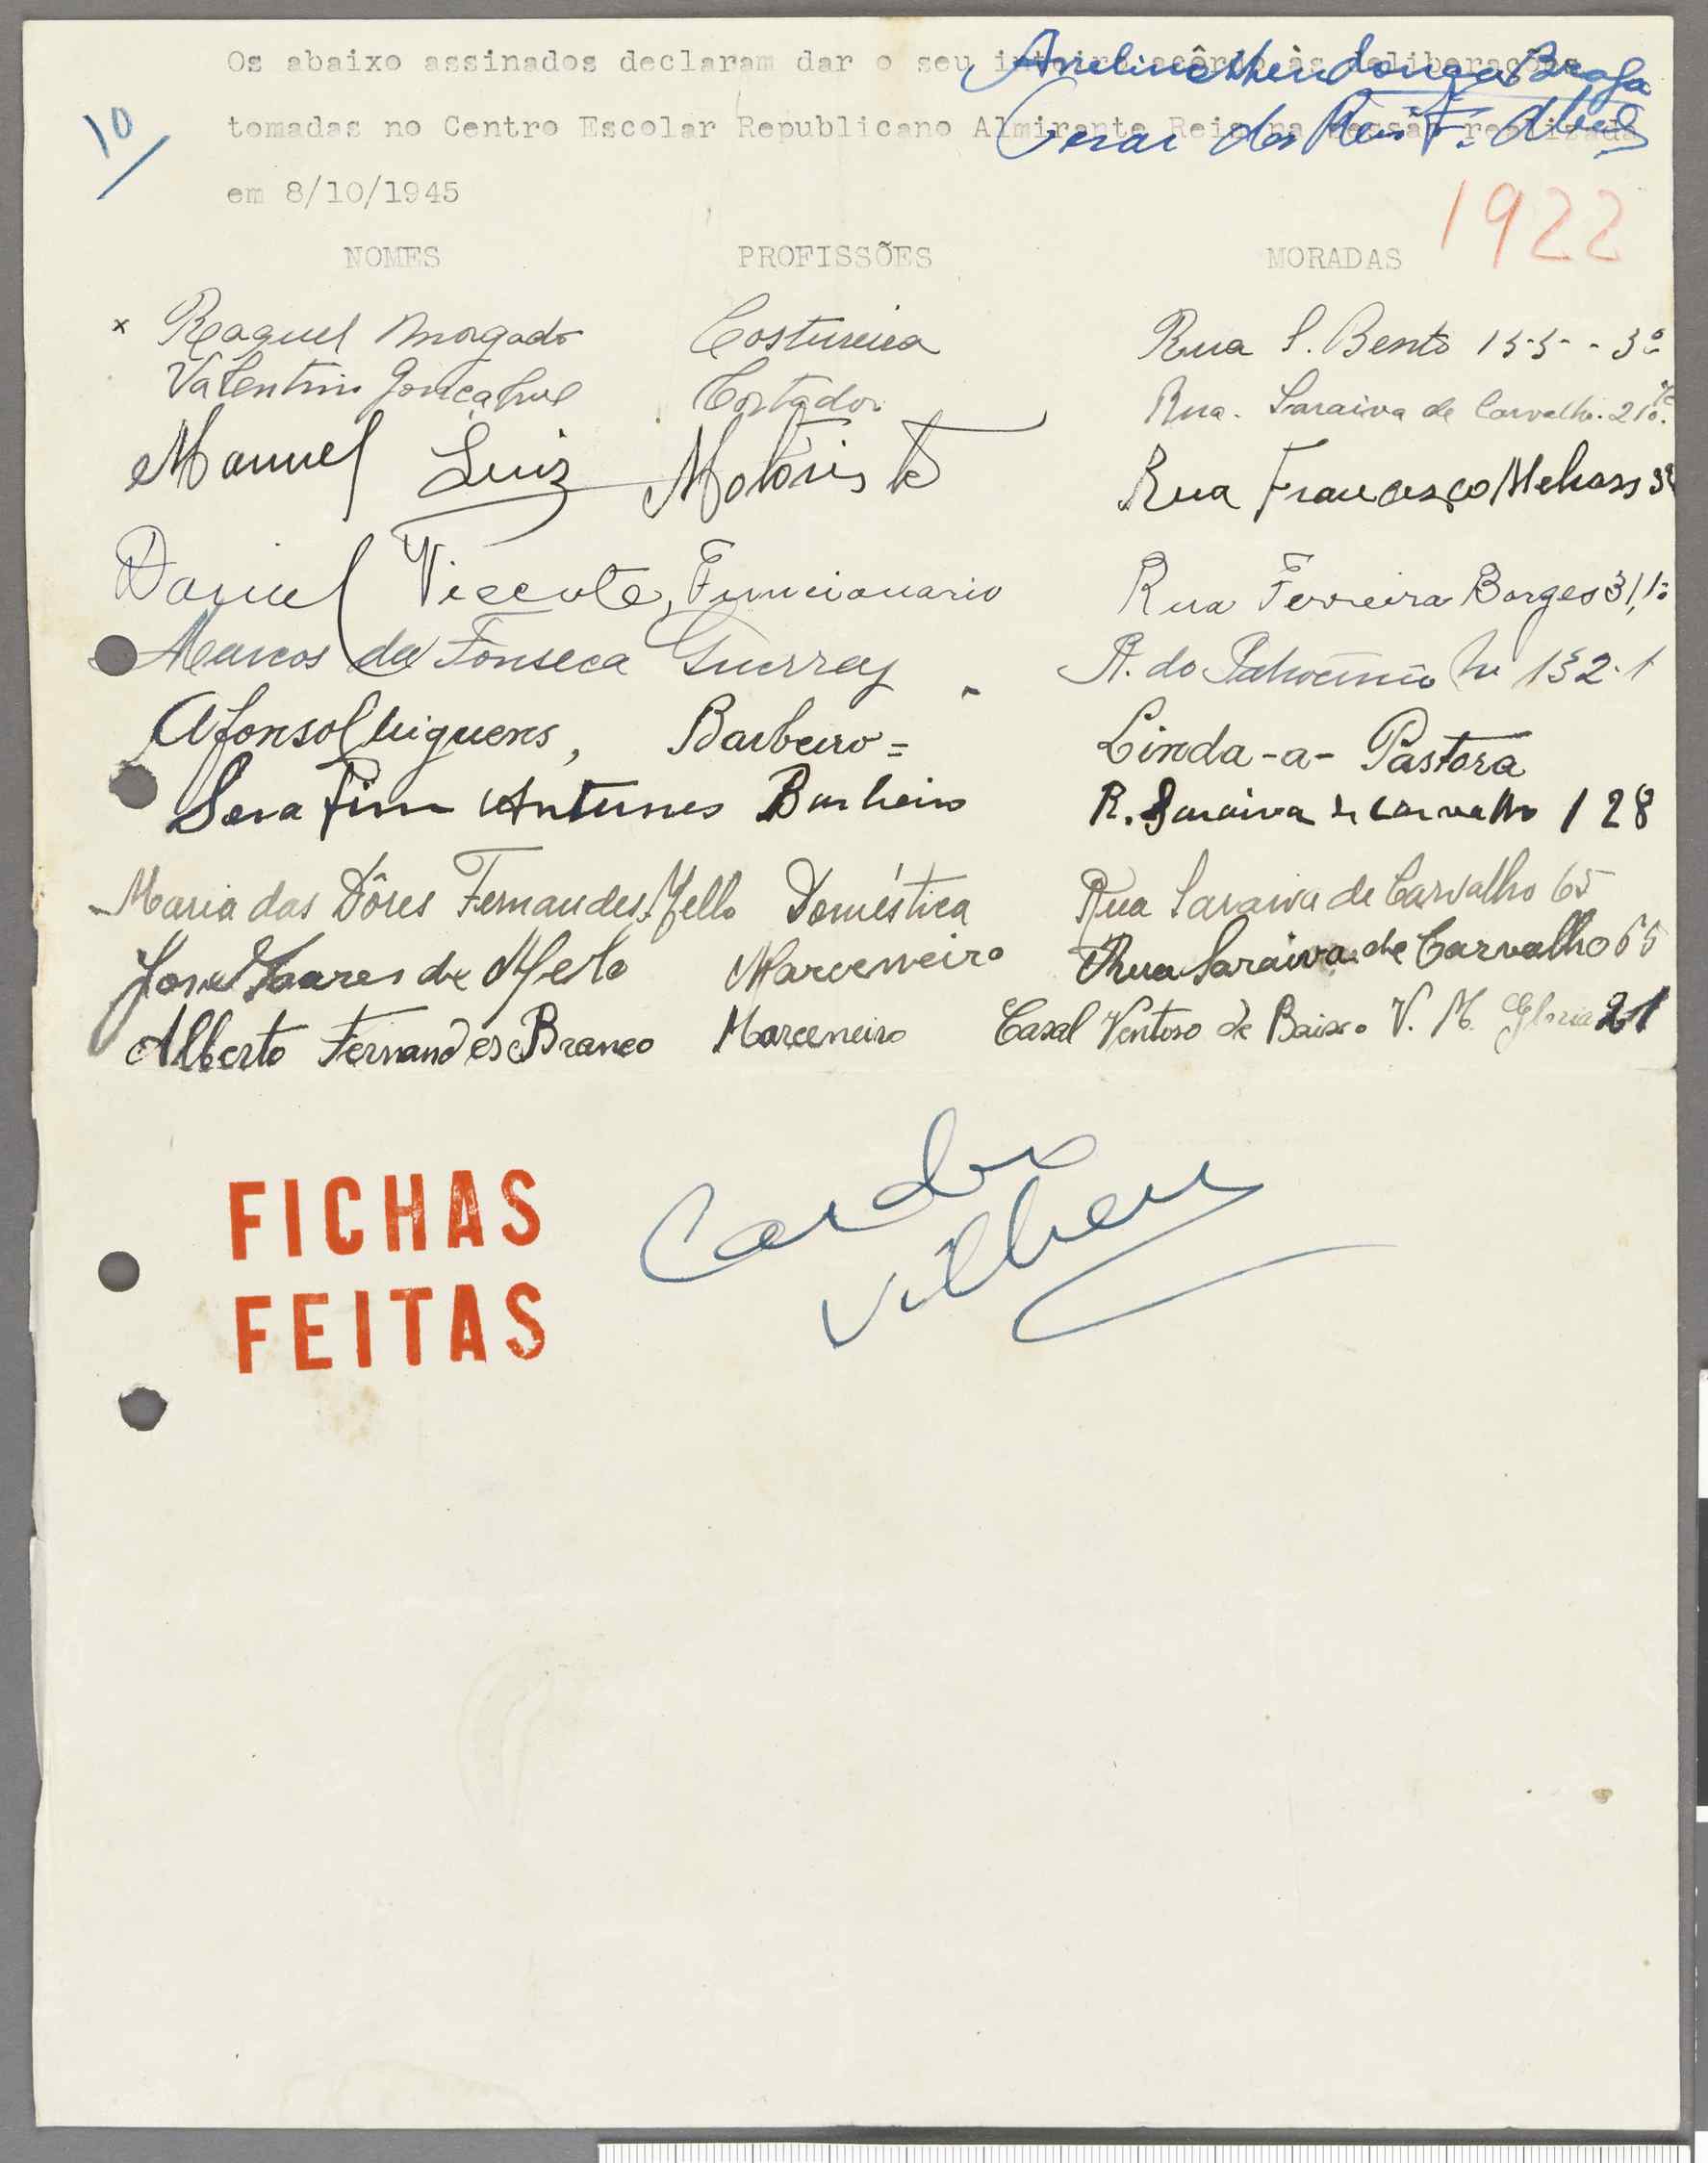 Os abaixo assinados declaram dar o seu inteiro acôrdo às deliberações
Mendonça Braga
tomadas no Centro Escolar Republicano Almirante Reis na sessão realizada
Cesar dos Reis F.
10
em 8/10/1945
1922
NOMES PROFISSÕES MORADAS
x Raquel Morgado Costureira Rua S. Bento 155 - 3º
Valentim Cortador Rua. Saraiva de Carvalho. 210.
Manuel Luiz Motorista Rua Francisco
Daniel Vicente, Funcionario Rua Ferreira Borges 31, 1º
Marcos da Fonseca Guerra R. do Patrocinio Nº 132-1
Afonso, Barbeiro = Linda-a-Pastora
Serafim Antunes Barbeiro R. Saraiva de Carvalho 128
Maria das Dôres Fernandes Mello Doméstica Rua Saraiva de Carvalho 65
José Soares de Melo Marceneiro Rua Saraiva de Carvalho 65
Alberto Fernandes Branco Marceneiro Casal Ventoso de Baixo V. M. Gloria 21
FICHAS
FEITAS